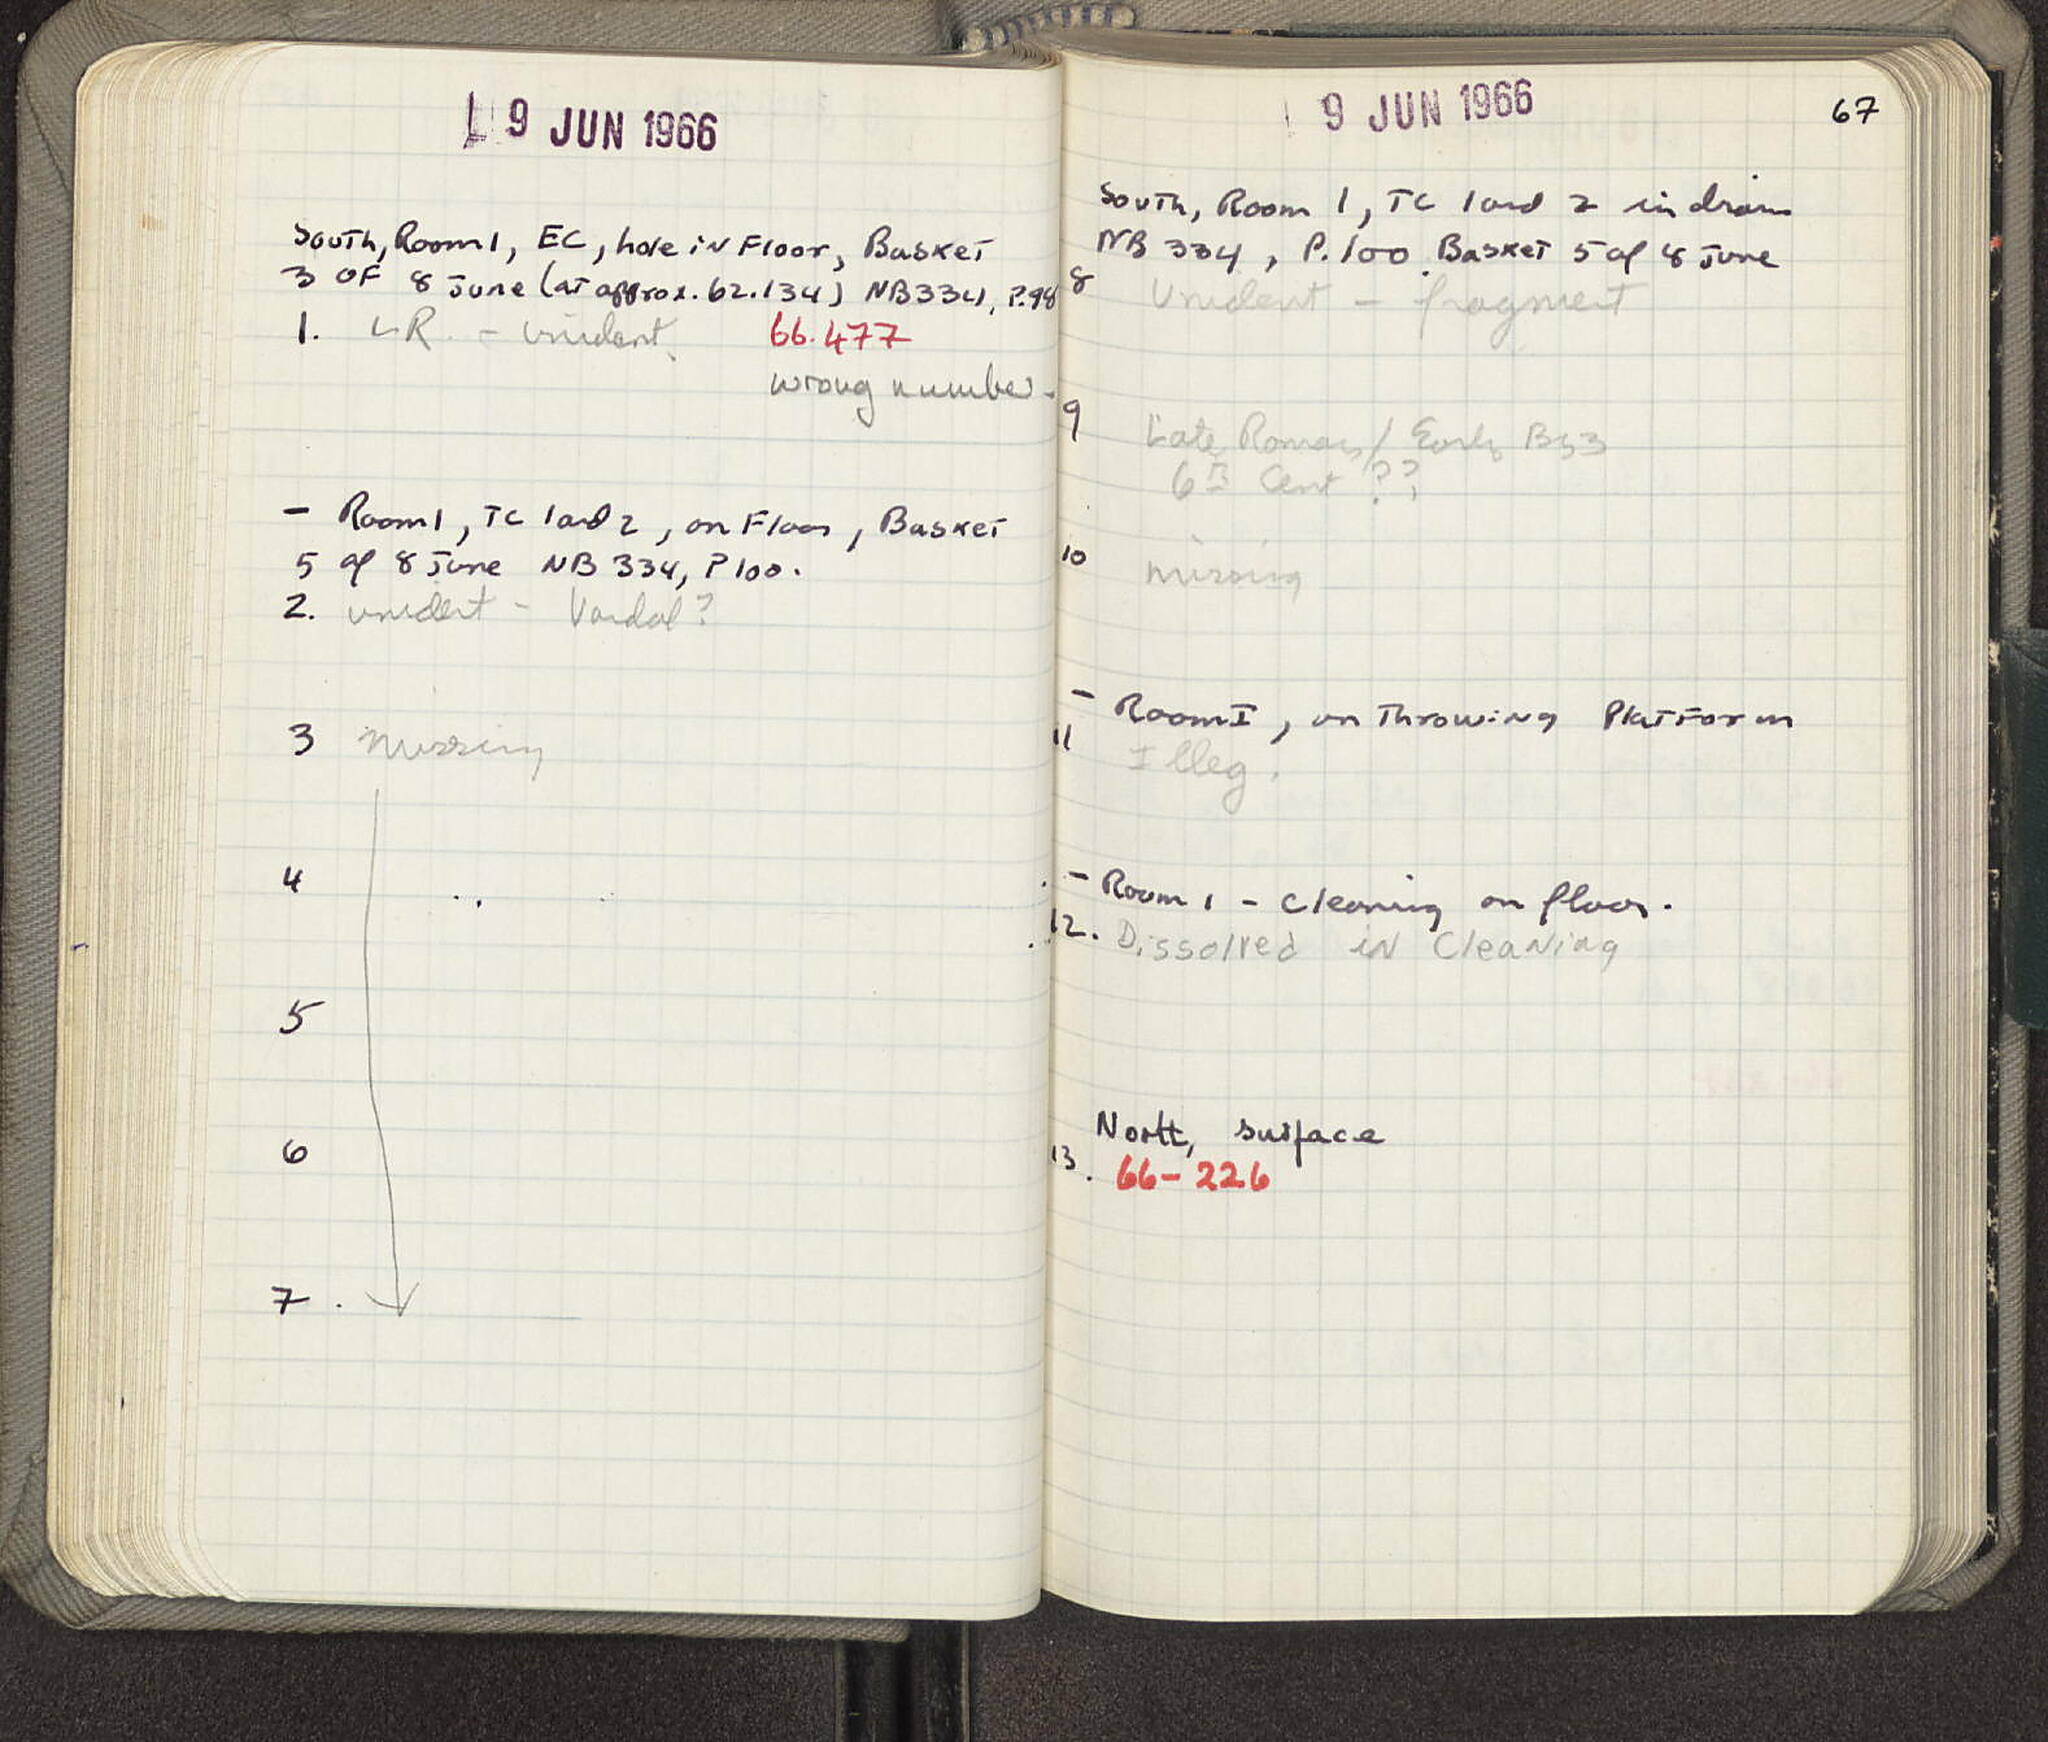 9 JUN 1966
South, Room 1, EC, hole in Floor, Basket
3 OF 8 June (at approx. 62.134) NB 334, P.98
1. LR. - unident. 66.477
wrong number -
- Room 1, TC 1 and 2, on Floor, Basket
5 of 8 June NB 334, P 100.
2. unident - Vandal?
3 missing
4
5
6
7.
9 JUN 1966
67
South, Room 1, TC 1 and 2 in drain
NB 334, P. 100. Basket 5 of 8 June
8 Unident - fragment
9 Late Roman / Early Byz
6th Cent ??
10 missing
- Room I, on Throwing Platform
11 Illeg.
- Room 1 - cleaning on floor.
12. Dissolved in Cleaning
North, surface
13. 66-226